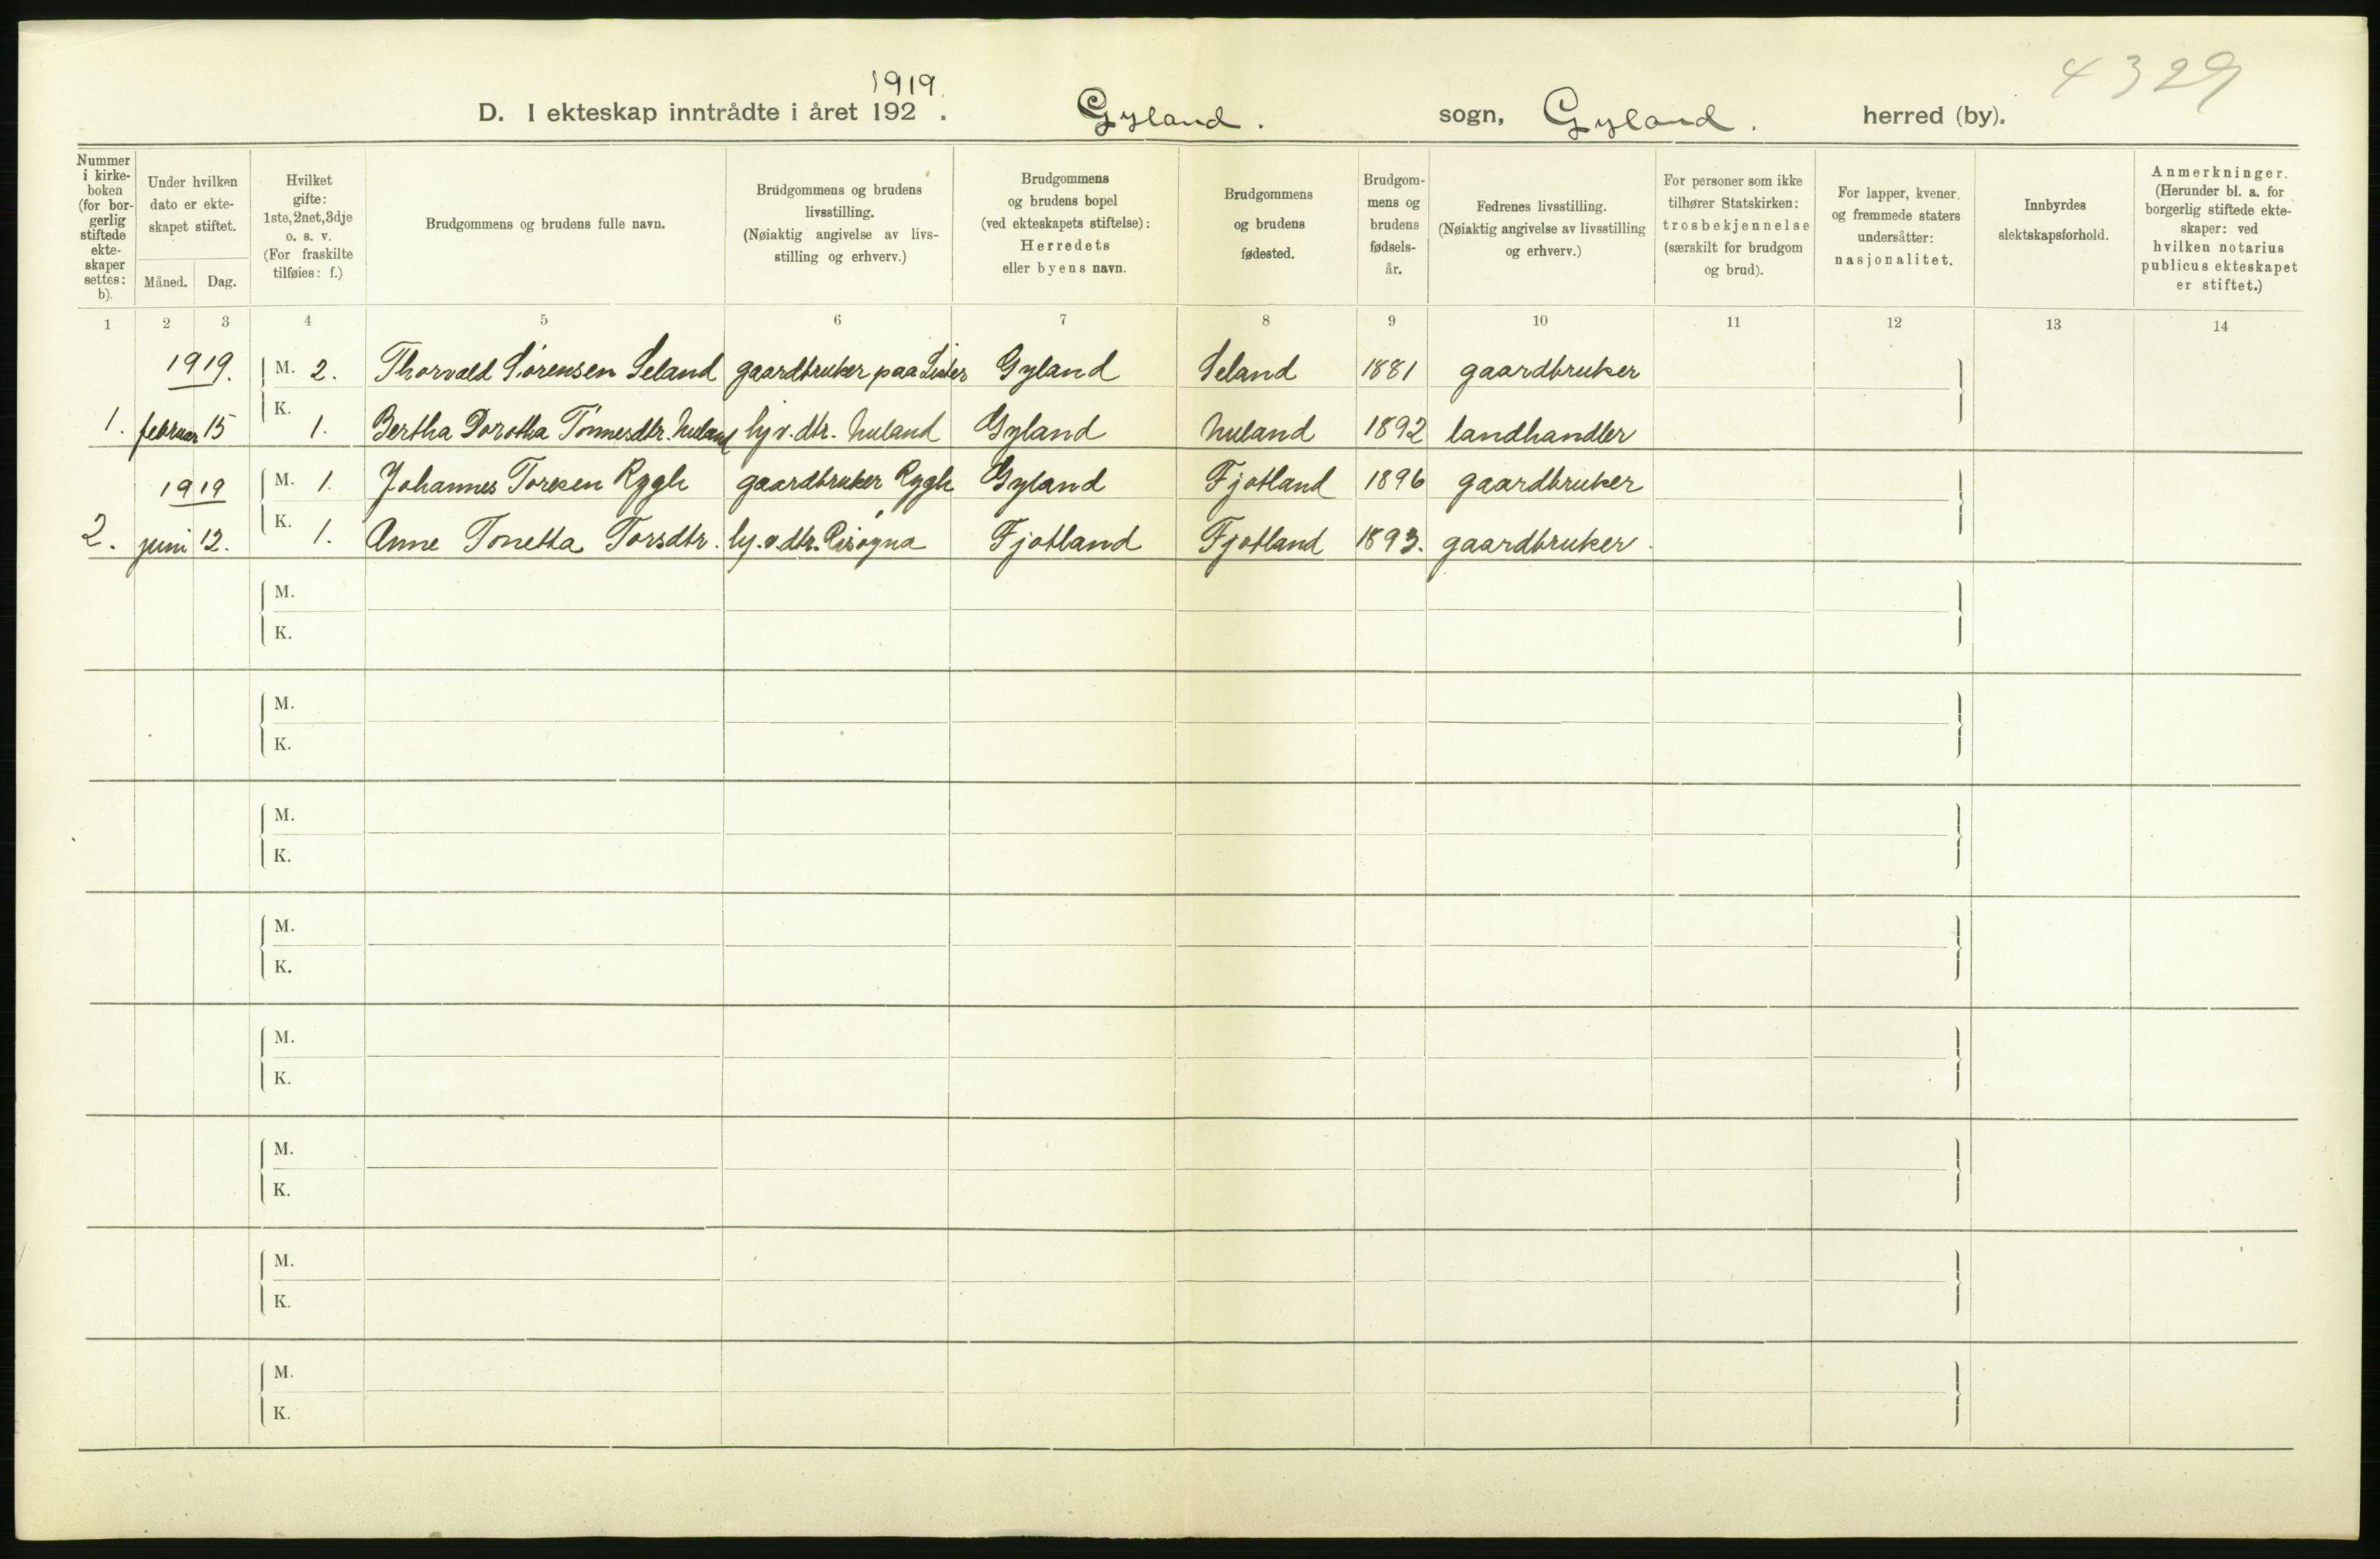 4329
1919.
D. I ekteskap inntrådte i året 192 . Gyland. sogn, Gyland. herred (by).
Nummer i kirke-boken (for bor-gerlig stiftede ekte-skaper settes: b).
Under hvilken dato er ekte-skapet stiftet.
Måned. Dag.
Hvilket gifte: 1ste, 2net, 3dje o. s. v. (For fraskilte tilføies: f.)
Brudgommens og brudens fulle navn.
Brudgommens og brudens livsstilling. (Nøiaktig angivelse av livs-stilling og erhverv.)
Brudgommens og brudens bopel (ved ekteskapets stiftelse): Herredets eller byens navn.
Brudgommens og brudens fødested.
Brudgom-mens og brudens fødsels-år.
Fedrenes livsstilling. (Nøiaktig angivelse av livsstilling og erhverv.)
For personer som ikke tilhører Statskirken: trosbekjennelse (særskilt for brudgom og brud).
For lapper, kvener og fremmede staters undersåtter: nasjonalitet.
Innbyrdes slektskapsforhold.
Anmerkninger. (Herunder bl. a. for borgerlig stiftede ekte-skaper: ved hvilken notarius publicus ekteskapet er stiftet.)
1 2 3 4 5 6 7 8 9 10 11 12 13 14
1919. M. 2. Thorvald Sørensen Seland gaardbruker paa Gyland Seland 1881 gaardbruker
1. februar 15 K. 1. Bertha Dorothea Tønnesdtr. Nuland hj v. dtr. Nuland Gyland Nuland 1892 landhandler
1919 M. 1. Johannes Toresen Rygh gaardbruker Rygh Gyland Fjotland 1896 gaardbruker
2. juni 12. K. 1. Anne Tonetta Torsdtr. hj. v. dtr. Fjotland Fjotland 1893. gaardbruker
M.
K.
M.
K.
M.
K.
M.
K.
M.
K.
M.
K.
M.
K.
M.
K.